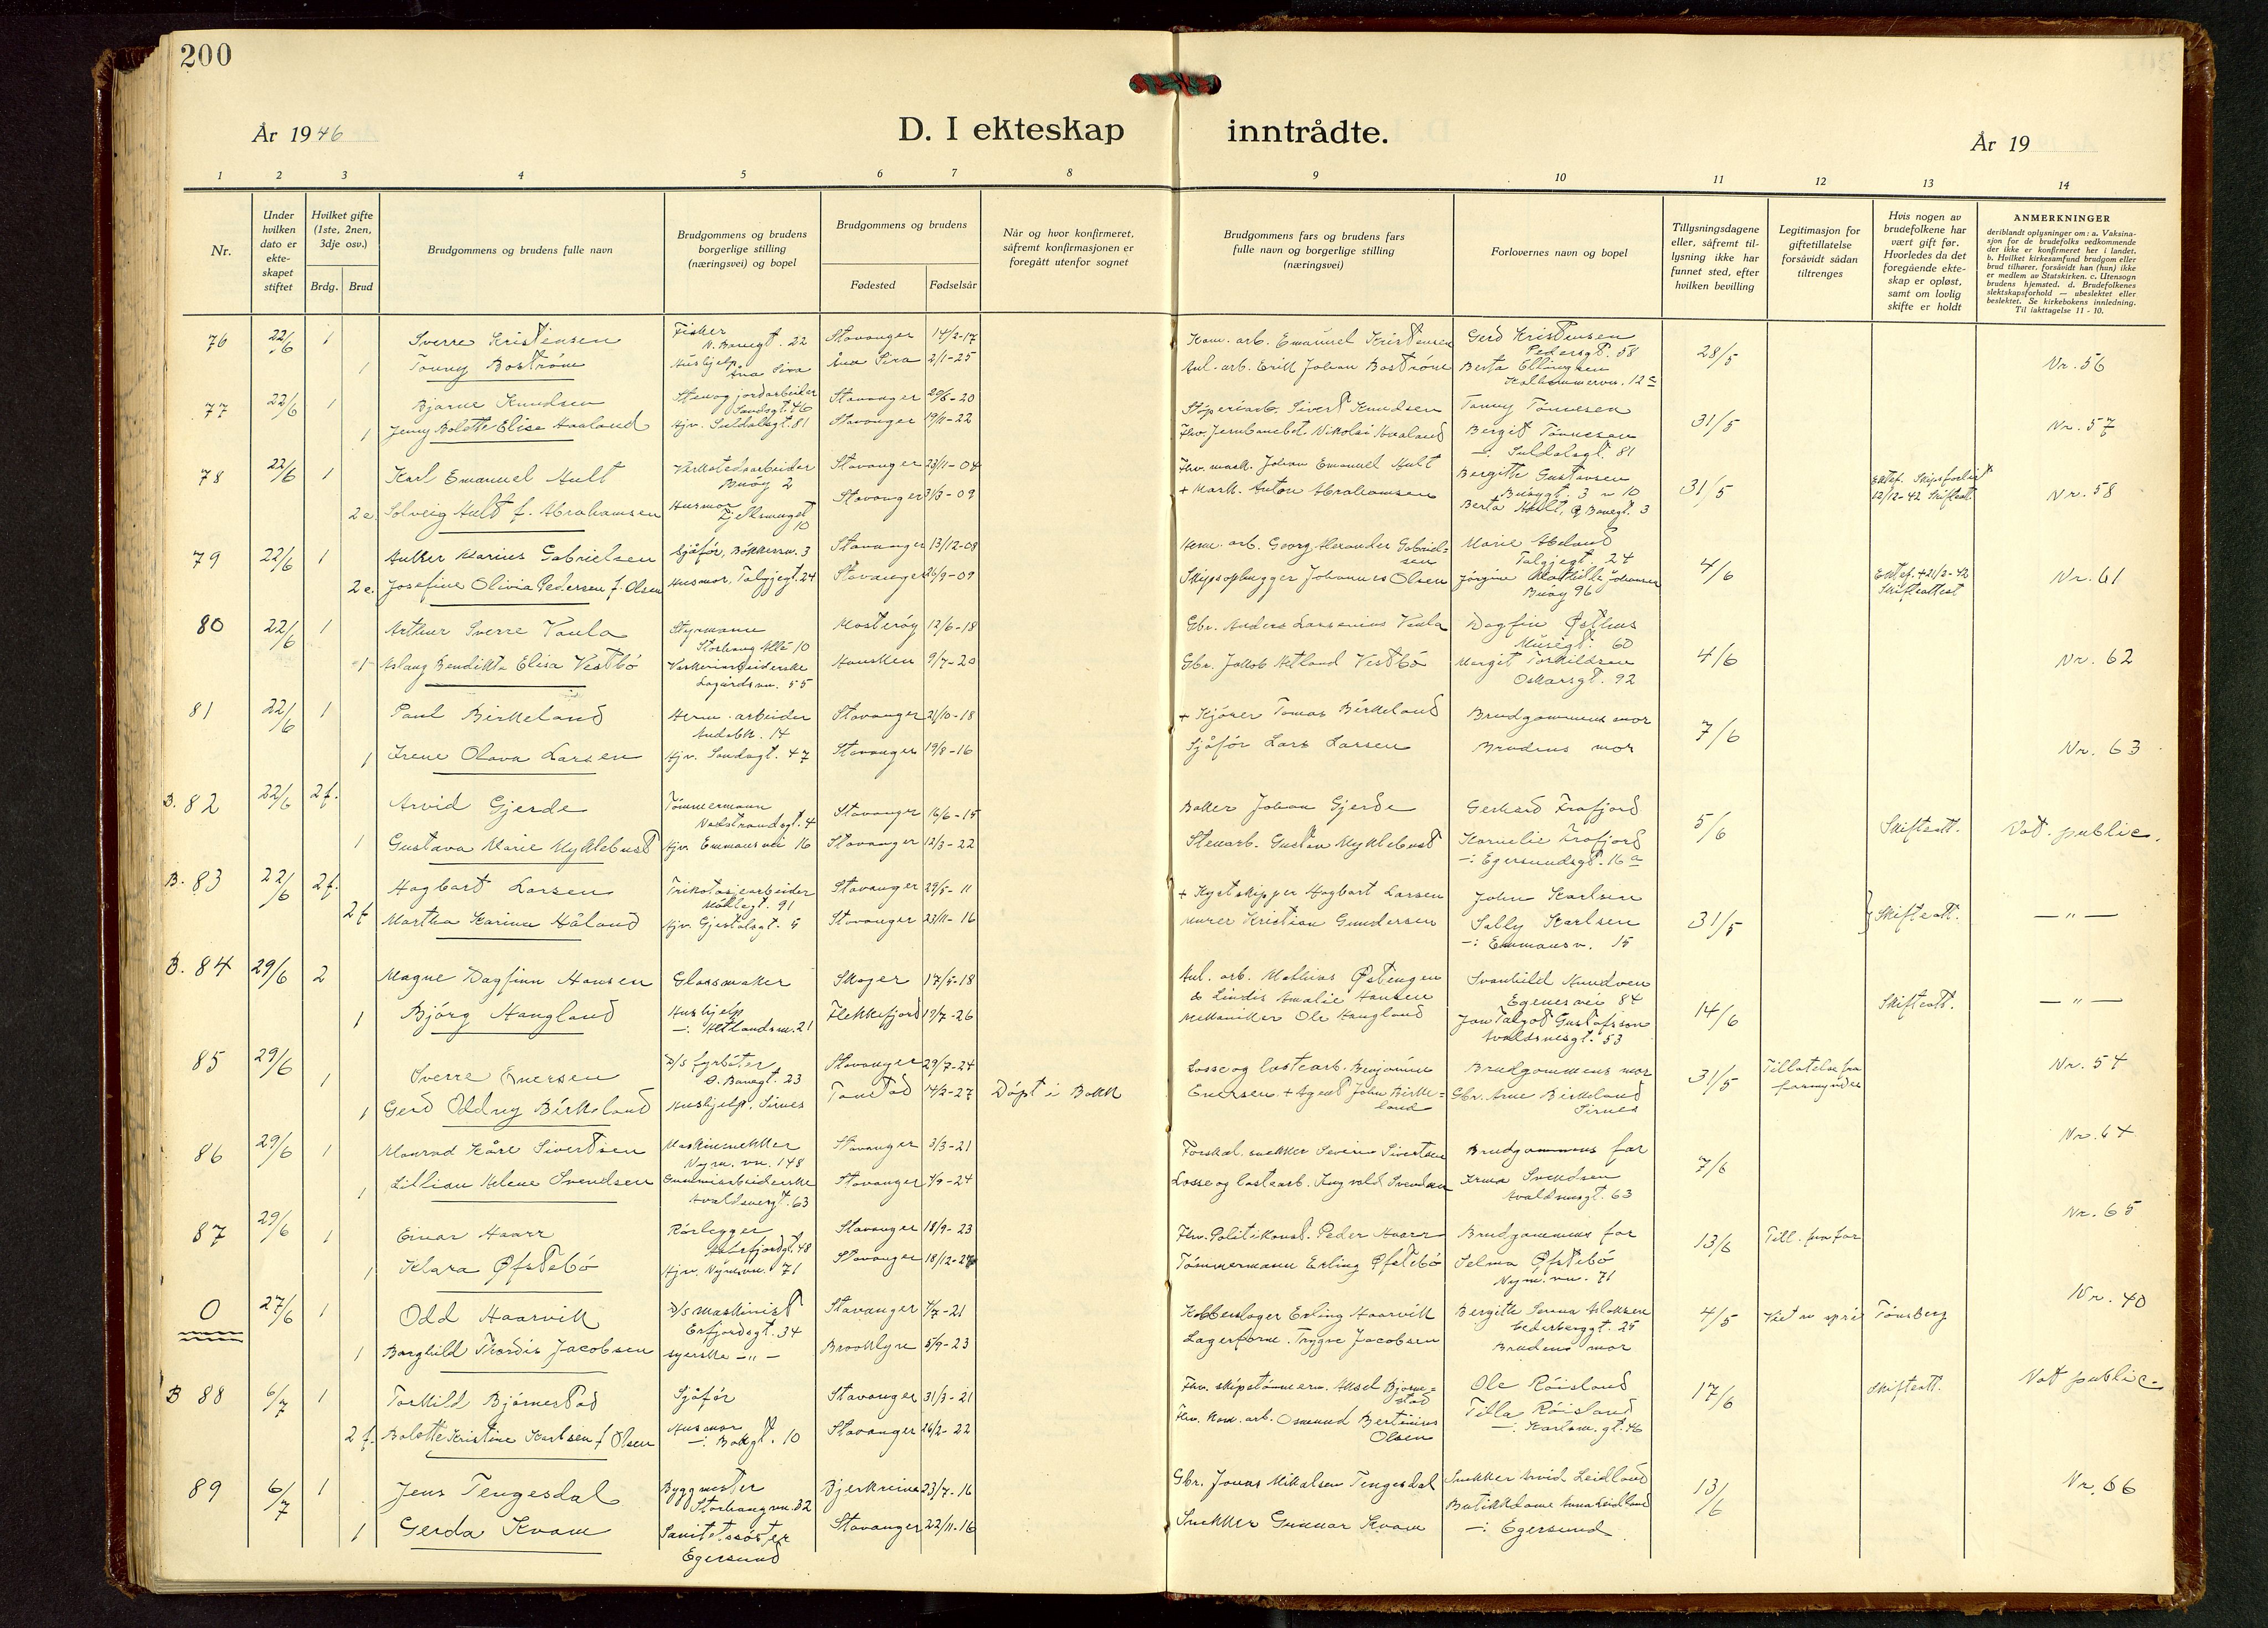 200
År 1946
D. I ekteskap inntrådte.
År 19
1 2 3 4 5 6 7 8 9 10 11 12 13 14
Nr.
Under hvilken dato er ekteskapet stiftet
Hvilket gifte (1ste, 2nen, 3dje osv.)
Brdg. Brud
Brudgommens og brudens fulle navn
Brudgommens og brudens borgerlige stilling (næringsvei) og bopel
Brudgommens og brudens
Fødested Fødselsår
Når og hvor konfirmeret, såfremt konfirmasjonen er foregått utenfor sognet
Brudgommens fars og brudens fars fulle navn og borgerlige stilling (næringsvei)
Forlovernes navn og bopel
Tillysningsdagene eller, såfremt tillysning ikke har funnet sted, efter hvilken bevilling
Legitimasjon for giftetillatelse forsåvidt sådan tiltrenges
Hvis nogen av brudefolkene har vært gift før. Hvorledes da det foregående ekteskap er opløst, samt om lovlig skifte er holdt
ANMERKNINGER
deriblandt oplysninger om: a. Vaksinasjon for de brudefolks vedkommende der ikke er konfirmeret her i landet. b. Hvilket kirkesamfund brudgom eller brud tilhører, forsåvidt han (hun) ikke er medlem av Statskirken. c. Utensogn brudens hjemsted. d. Brudefolkenes slektskapsforhold — ubeslektet eller beslektet. Se kirkebokens innledning. Til iakttagelse 11 - 10.
76 22/6 1 Sverre Kristensen Fisker N. Banegt. 22 Stavanger 14/2-17 Kom. arb. Emanuel Kristensen Gerd Kristensen Pedersgt. 58 28/5 Nr. 56
1 Tonny Boström Hushjelp Åna Sira Åna Sira 2/1-25 Anl. arb. Erik Johan Boström Berta Ellingsen
77 22/6 1 Bjarne Knudsen Sten og jordarbeider Sandsgt. 46 Stavanger 29/6-20 Støperiarb. Sivert Knudsen Tonny Tönnesen 31/5 Nr. 57
1 Jenny Bolette Elise Haaland Hjv. Suldalsgt. 81 Stavanger 19/11-22 Fhv. Jernbanebet. Nikolai Haaland Bergit Tönnesen -: Suldalsgt 81
78 22/6 1 Karl Emanuel Hult Verkstedsarbeider Buøy 2 Stavanger 23/11-04 Fhv. mask. Johan Emanuel Hult Bergitte Gustavsen 31/5 12/12-42 Skifteatt. Nr. 58
2 e. Solveig Hult f. Abrahamsen Husmor 10 Stavanger 31/3-09 + Mask. Anton Abrahamsen Berta Hult, Ø. Banegt. 3
79 22/6 1 Anker Marius Gabrielsen Sjåför, Bökkersm. 3 Stavanger 13/12-08 Herm. arb. Georg Alexander Gabrielsen Marie Abeland Talgjegt. 24 4/6 Ektef. +21/2-42 Skifteattest Nr. 61
2 e. Josefine Olivia Pedersen f. Olsen Husmor, Talgjegt. 24 Stavanger 26/9-09 Skipsophugger Johannes Olsen Jörgine Mathilde Johansen Buøy 96
80 22/6 1 Arthur Sverre Vaula Styrmann Storhaug Alle 10 Mosterøy 12/6-18 Gbr. Anders Lassenius Vaula Dagfin Østhus Musegt. 60 4/6 Nr. 62
1 Aslaug Bendikte Elisa Vestbö Vaskeriarbeiderske Lagårdsvn. 55 Hausken 9/7-20 Gbr. Jakob Hetland Vestbö Margit Torkildsen Oskarsgt. 92
81 22/6 1 Paul Birkeland Herm. arbeider Andebk. 14 Stavanger 21/10-18 + Kjörer Tomas Birkeland Brudgommens mor 7/6 Nr. 63
1 Irene Olava Larsen Hjv. Sandsgt. 47 Stavanger 19/8-16 Sjåför Lars Larsen Brudens mor
B. 82 22/6 2 f. Arvid Gjerde Tömmermann Nedstrandsgt. 4 Stavanger 16/6-15 Baker Johan Gjerde Gerhard Frafjord 5/6 Skifteatt. Not. public.
1 Gustava Marie Myklebust Hjv. Emmausvei 16 Stavanger 12/3-22 Stenarb. Gustav Myklebust Kornelie Frafjord -: Egersundsgt. 16 a
B. 83 22/6 2 f. Hagbart Larsen Trikotasjearbeider Møllegt. 91 Stavanger 29/5-11 + Kystskipper Hagbart Larsen John Karlsen 31/5 Skifteatt. — " —
2 f Martha Karine Håland Hjv. Gjestalsgt. 5 Stavanger 23/11-16 Murer Kristian Gundersen Sally Karlsen -: Emmausv. 15
B. 84 29/6 2 Magne Dagfinn Hansen Glassmaker Skoger 17/5-18 Anl. arb. Mathias Østengen & Lindis Amalie Hansen Svanhild Knudsen Egenesvei 84 14/6 Skifteatt. — " —
1 Bjørg Haugland Hushjelp -: Hetlandsm. 21 Flekkefjord 19/7-26 Mekaniker Ole Haugland Jon Talgot Gustafsson Avaldsnesgt. 53
85 29/6 1 Sverre Enersen D/s fyrböter Ö. Banegt. 23 Stavanger 29/7-24 Losse og lastearb. Benjamin Enersen Brudgommens mor 31/5 Tillatelse fra formynder Nr. 54
1 Gerd Oddny Birkeland Hushjelp, Sirnes Tonstad 14/2-27 Döpt i Bakk + Agent John Birkeland Gbr. Arne Birkeland Sirnes
86 29/6 1 Konrad Kåre Sivertsen Maskinsnekker Nym. vn. 148 Stavanger 3/3-21 Forskal. snekker Severin Sivertsen Brudgommens far 7/6 Nr. 64
1 Lillian Helene Svendsen Gummiarbeiderske Avaldsnesgt. 63 Stavanger 1/9-24 Losse og lastearb. Ingvald Svendsen Irma Svendsen Avaldsnesgt. 63
87 29/6 1 Einar Haarr Rörlegger Stavanger 18/9-23 Fhv. Politikonst. Peder Haarr Brudgommens far 13/6 Till. fra far Nr. 65
1 Klara Øfstebö Hjv. Nymsvn. 71 Stavanger 18/12-27 Tömmermann Erling Øfstebö Selma Øfstebö Nym. vn. 71
0 27/6 1 Odd Haarvik D/s maskinist Erfjordsgt. 34 Stavanger 7/7-21 Kobberslager Erling Haarvik Bergitte Serina Aloksen 4/5 Tönsberg Nr. 40
1 Borghild Thordis Jacobsen syerske — " — Brooklyn 5/9-23 Lagerform. Trygve Jacobsen Brudens mor
B 88 6/7 1 Torkild Bjørnestad Sjåför Stavanger 31/3-21 Fhv. skipstömmerm. Aksel Bjørnestad Ole Röisland 17/6 Skifteatt. Not public.
2 f. Bolette Kristine Karlsen f. Olsen Husmor -: Bakgt. 10 Stavanger 26/2-22 Fhv. Kom. arb. Osmund Bertinius Olsen Tilla Röisland -: Karlsm. gt. 46
89 6/7 1 Jens Tengesdal Byggmester Storhaugvn. 32 Bjerkreim 23/7-16 Gbr. Jonas Mikalsen Tengesdal Snekker Arvid Leidland 13/6 Nr. 66
1 Gerda Kvam Sanitetssöster Egersund Stavanger 22/11-16 Snekker Gunnar Kvam Butikkdame Anna Leidland -: Egersund